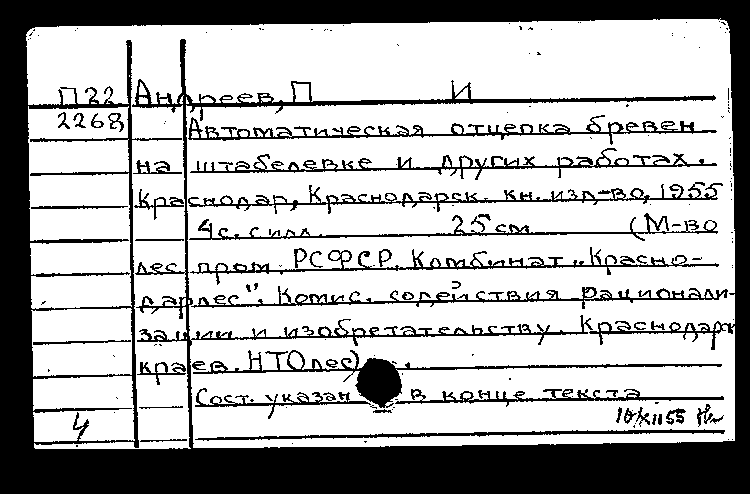 П22 Андреев, П И
2268
Автоматическая отцепка бревен
на штабелевке и других работах.
Краснодар, Краснодарск. кн. изд-во, 1955
4с. с илл. 25 см (М-во
лес пром. РСФСР. Комбинат „Красно-
дарлес". Комис. содействия рационали-
зации и изобретательству. Краснодарск
краев. НТОлес)
Сост. указан в конце текста
4 10/XII 55